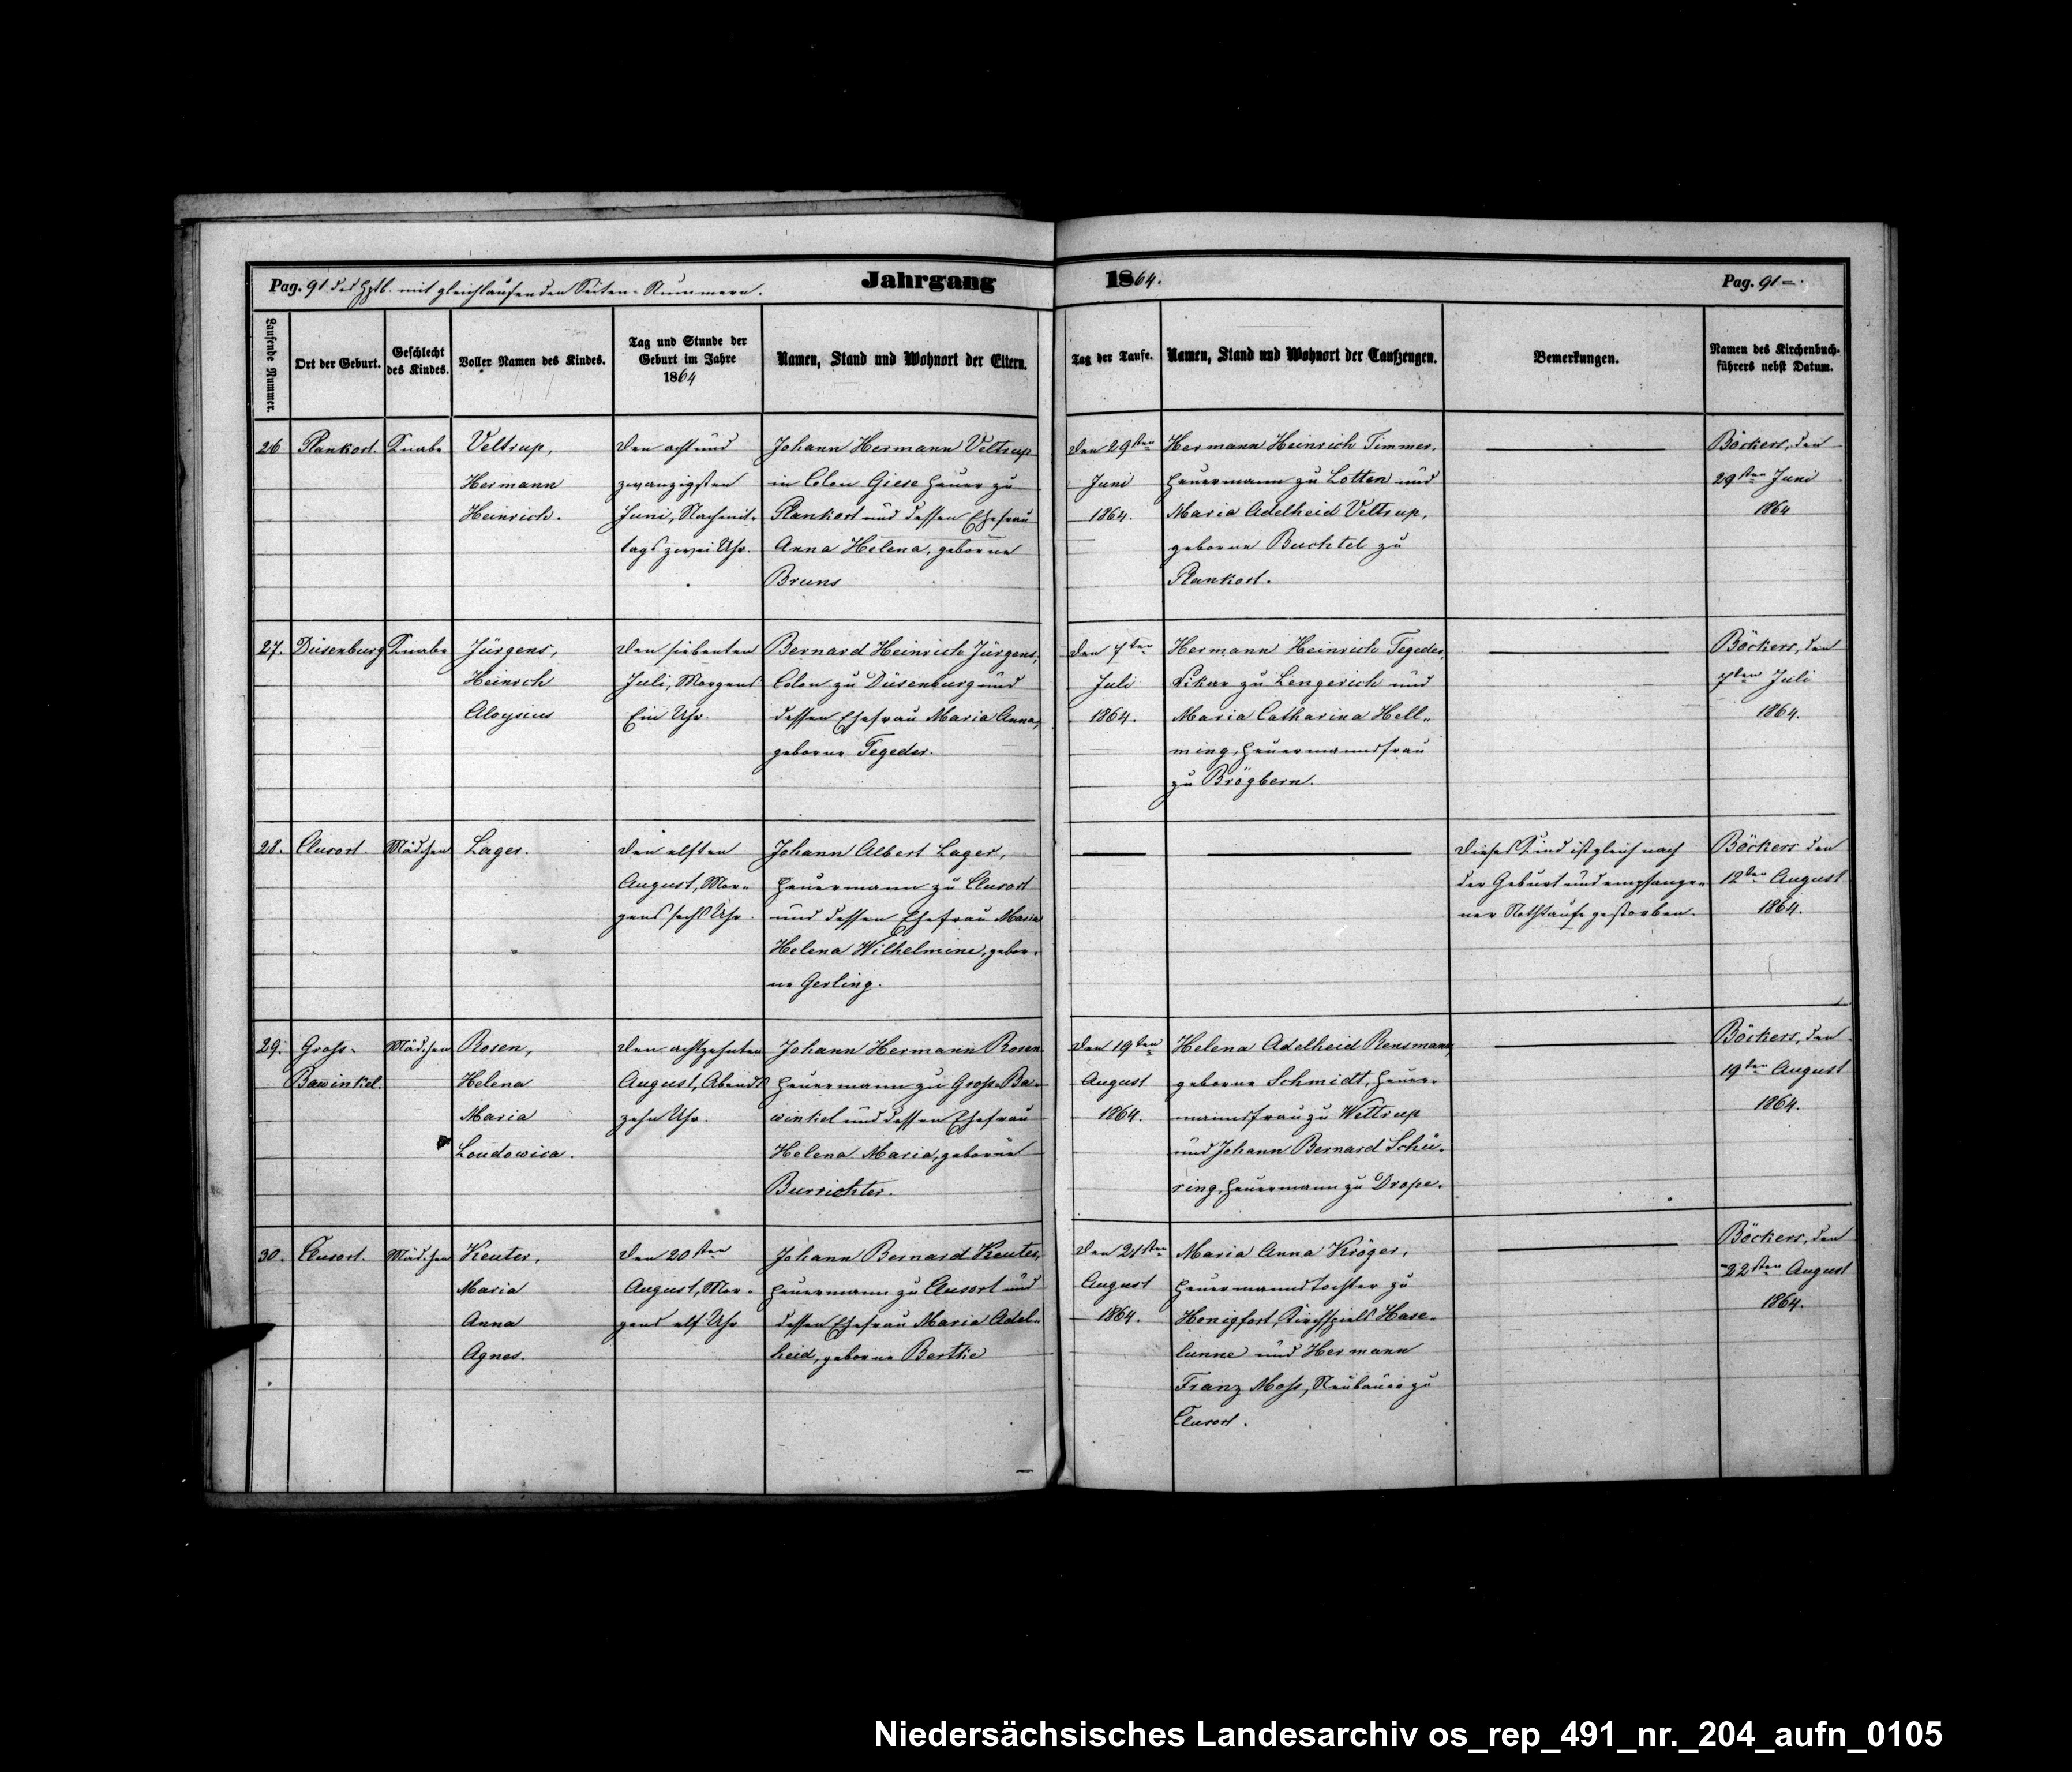 Pag. 91 des Hptb. mit gleichlaufenden Seiten-Nummern.
Jahrgang 1864.
Pag. 91
Laufende Nummer.
Ort der Geburt.
Geschlecht des Kindes.
Voller Namen des Kindes.
Tag und Stunde der
Geburt im Jahre
1864
Namen, Stand und Wohnort der Eltern.
Tag der Taufe.
Namen, Stand und Wohnort der Taufzeugen.
Bemerkungen.
Namen des Kirchenbuch-
führers nebst Datum.
26
Plankort.
Knabe
Veltrup,
Hermann
Heinrich.
Den acht und
zwanzigsten
Juni, Nachmit-
tags zwei Uhr.
Johann Hermann Veltrup
in Colon Giese Heuer zu
Plankort und dessen Ehefrau
Anna Helena, geborne
Bruns
Den 29sten
Juni
1864.
Hermann Heinrich Timmer,
Heuermann zu Lotten und
Maria Adelheid Veltrup,
geborne Buchtel zu
Plankort.
Böckers, den
29sten Juni
1864
27.
Düsenburg
Knabe
Jürgens,
Heinrch
Aloysius
Den siebenten
Juli, Morgens
Ein Uhr.
Bernard Heinrich Jürgens,
Colon zu Düsenburg und
dessen Ehefrau Maria Anna,
geborne Tegeder.
Den 7ten
Juli
1864.
Hermann Heinrich Tegeder,
Vikar zu Lengerich und
Maria Catharina Hell-
ming, Heuermannsfrau
zu Brögbern.
Böckers, den
7ten Juli
1864.
28.
Clusort
Mädchen
Lager.
Den elften
August, Mor-
gens sechs Uhr.
Johann Albert Lager,
Heuermann zu Clusort
und dessen Ehefrau Maria
Helena Wilhelmine, gebor-
ne Gerling.
Dieses Kind ist gleich nach
der Geburt und empfange-
ner Nothtaufe gestorben.
Böckers den
12ten August
1864.
29.
Gross-
Bawinkel.
Mädchen
Rosen,
Helena
Maria
Loudowica.
Den achtzehnten
August, Abends
zehn Uhr.
Johann Hermann Rosen
Heuermann zu Gross-Ba-
winkel und dessen Ehefrau
Helena Maria, geborne
Burrichter.
Den 19ten
August
1864.
Helena Adelheid Rensmann,
geborne Schmidt, Heuer-
mannsfrau zu Wettrup
und Johann Bernard Schü-
ring, Heuermann zu Drope.
Böckers, den
19ten August
1864.
30.
Clusort.
Mädchen
Keuter,
Maria
Anna
Agnes.
Den 20sten
August, Mor-
gens elf Uhr
Johann Bernard Keuter,
Heuermann zu Clusort und
dessen Ehefrau Maria Adel-
heid, geborne Bertke
Den 21sten
August
1864.
Maria Anna Kröger,
Heuermannstochter zu
Henigfort, Kirchspiels Hase-
lünne und Hermann
Franz Moss, Neubauer zu
Clusort.
Böckers, den
22sten August
1864.
Niedersächsisches Landesarchiv os_rep_491_nr._204_aufn_0105